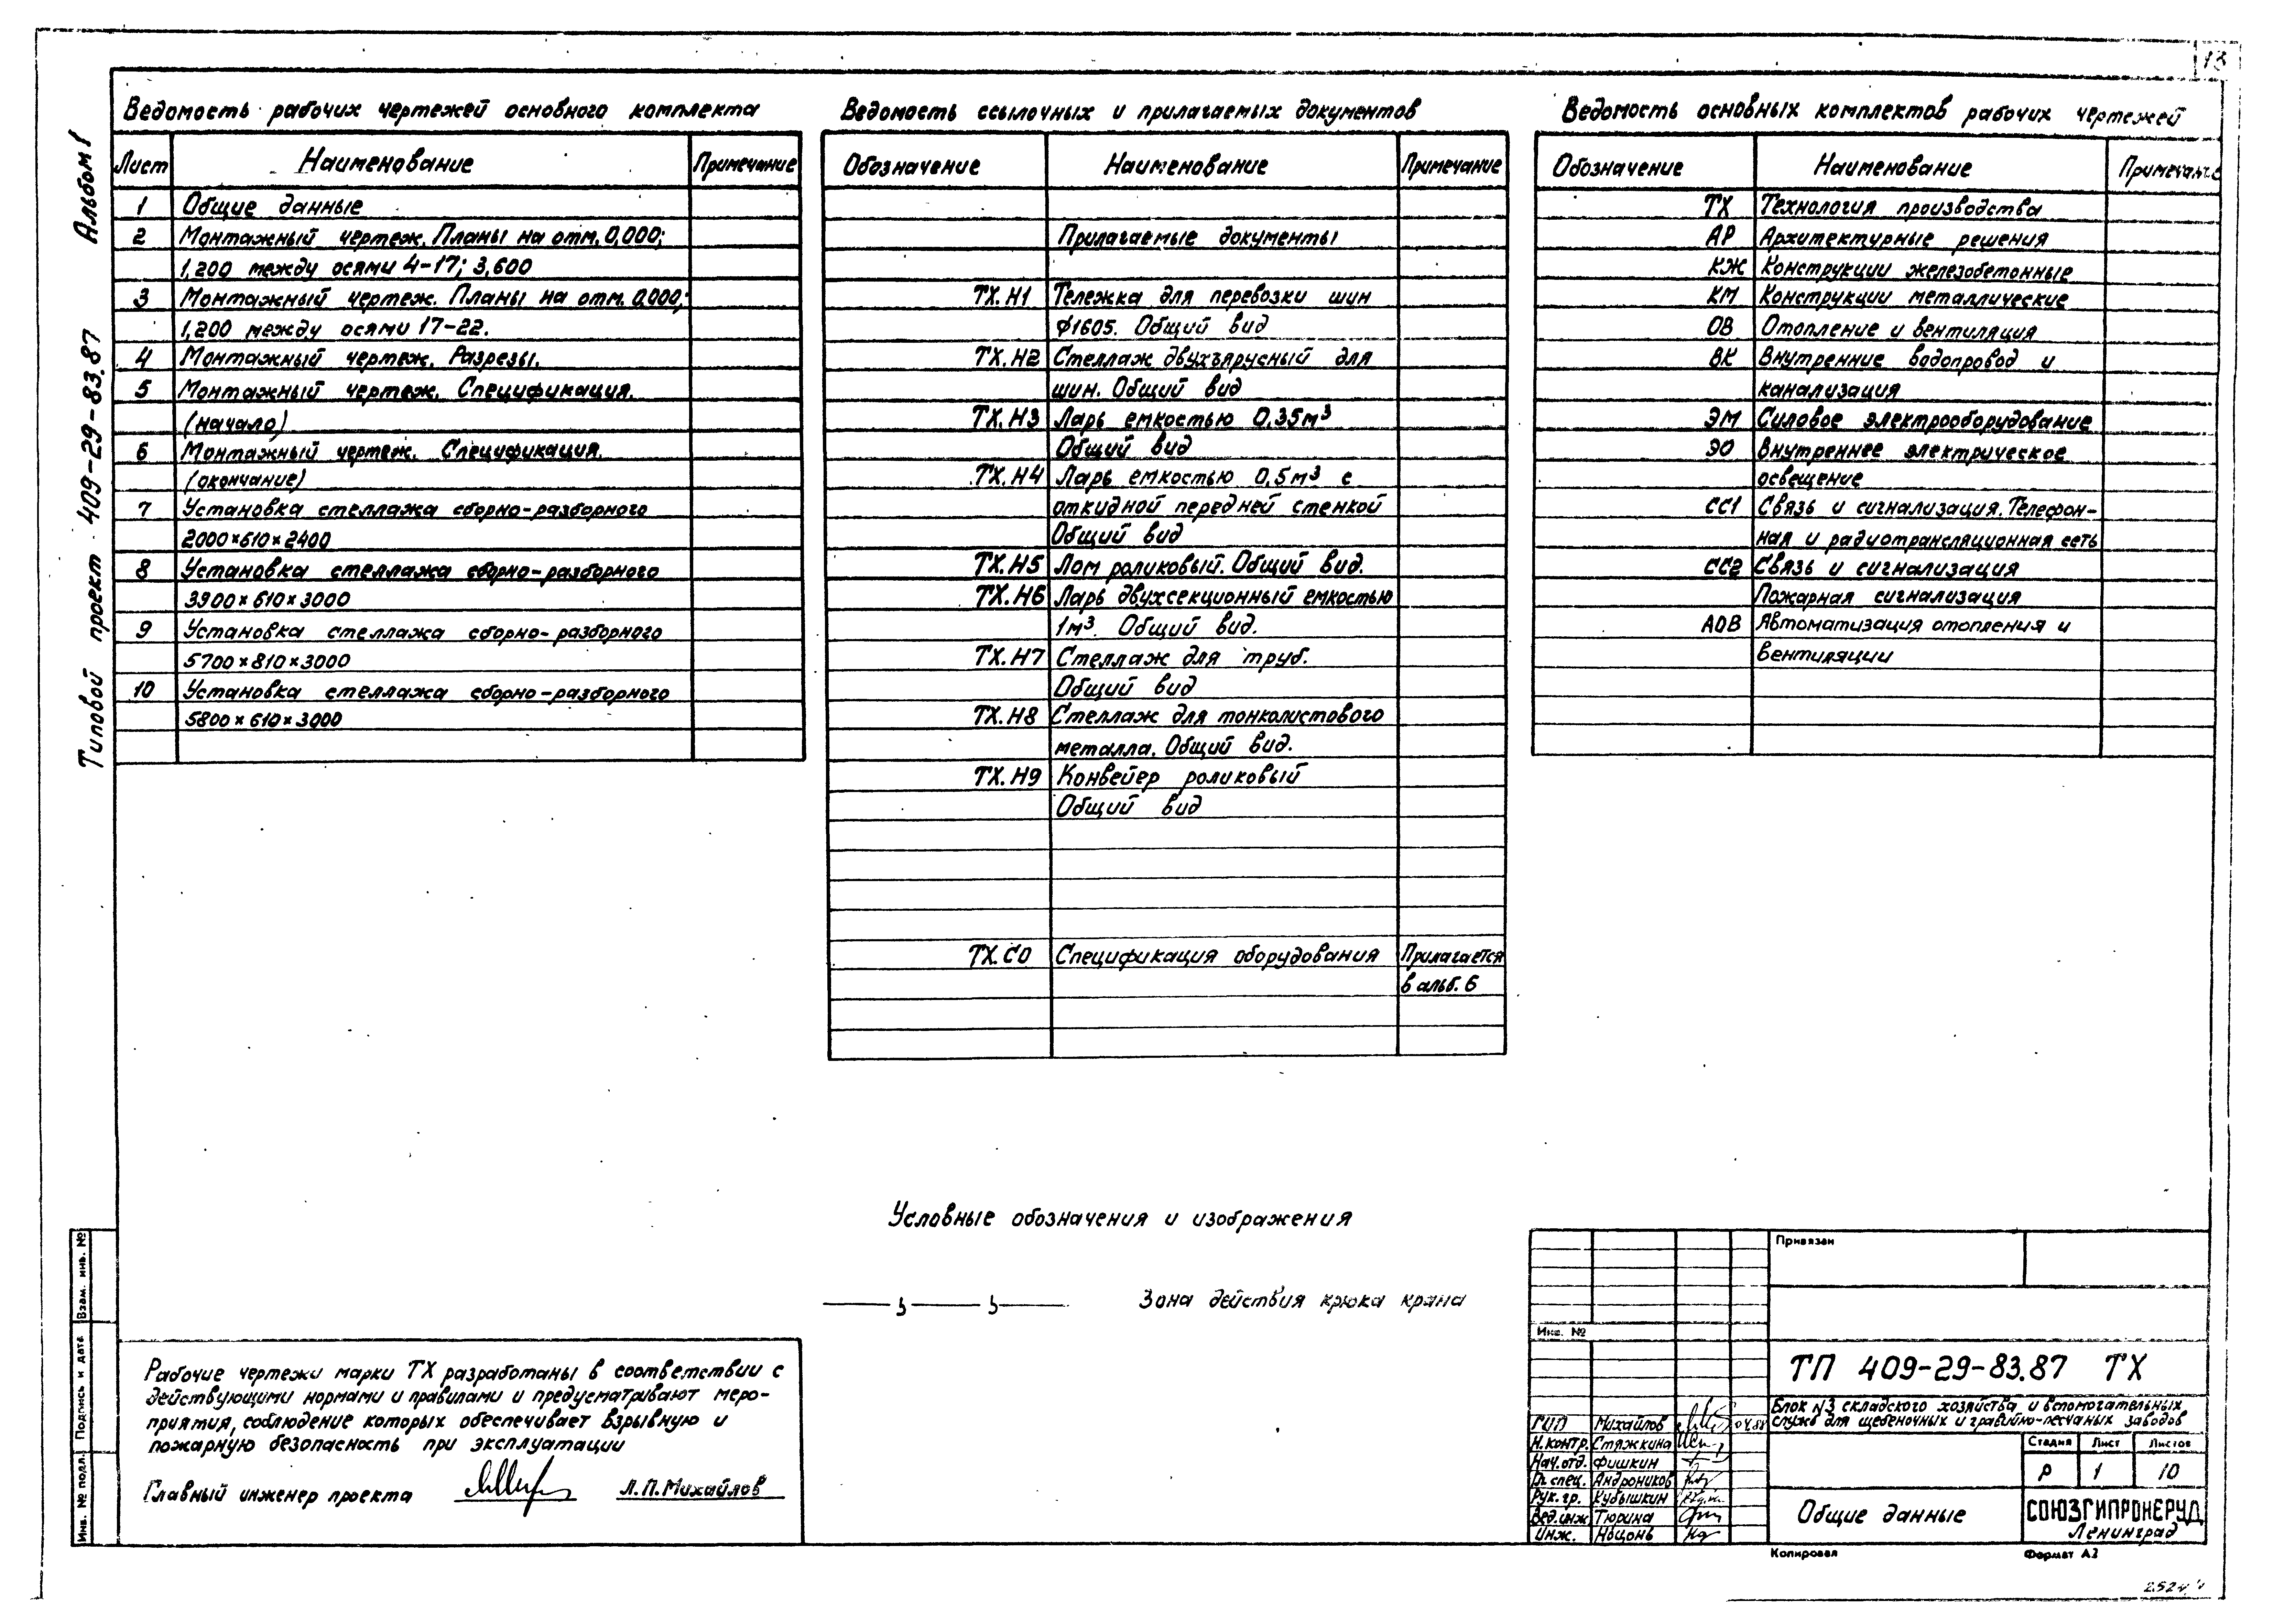 13
Альбом 1
Типовой проект 409-29-83.87
Ведомость рабочих чертежей основного комплекта
Лист Наименование Примечание
1 Общие данные
2 Монтажный чертеж. Планы на отм. 0,000;
1,200 между осями 4-17; 3,600
3 Монтажный чертеж. Планы на отм. 0,000;
1,200 между осями 17-22.
4 Монтажный чертеж. Разрезы.
5 Монтажный чертеж. Спецификация.
(начало)
6 Монтажный чертеж. Спецификация.
(окончание)
7 Установка стеллажа сборно-разборного
2000×610×2400
8 Установка стеллажа сборно-разборного
3900×610×3000
9 Установка стеллажа сборно-разборного
5700×810×3000
10 Установка стеллажа сборно-разборного
5800×610×3000
Ведомость ссылочных и прилагаемых документов
Обозначение Наименование Примечание
Прилагаемые документы
ТХ.Н1 Тележка для перевозки шин
ф1605. Общий вид
ТХ.Н2 Стеллаж двухъярусный для
шин. Общий вид
ТХ.Н3 Ларь емкостью 0,35м³
Общий вид
ТХ.Н4 Ларь емкостью 0,5м³ с
откидной передней стенкой
Общий вид
ТХ.Н5 Лом роликовый. Общий вид.
ТХ.Н6 Ларь двухсекционный емкостью
1м³. Общий вид.
ТХ.Н7 Стеллаж для труб.
Общий вид
ТХ.Н8 Стеллаж для тонколистового
металла. Общий вид.
ТХ.Н9 Конвейер роликовый
Общий вид
ТХ.СО Спецификация оборудования Прилагается
в альб. 6
Ведомость основных комплектов рабочих чертежей
Обозначение Наименование Примечание
ТХ Технология производства
АР Архитектурные решения
КЖ Конструкции железобетонные
КМ Конструкции металлические
ОВ Отопление и вентиляция
ВК Внутренние водопровод и
канализация
ЭМ Силовое электрооборудование
ЭО Внутреннее электрическое
освещение
СС1 Связь и сигнализация. Телефон-
ная и радиотрансляционная сеть
СС2 Связь и сигнализация
Пожарная сигнализация
АОВ Автоматизация отопления и
вентиляции
Условные обозначения и изображения
Зона действия крюка крана
Рабочие чертежи марки ТХ разработаны в соответствии с
действующими нормами и правилами и предусматривают меро-
приятия, соблюдение которых обеспечивает взрывную и
пожарную безопасность при эксплуатации
Главный инженер проекта Л.П. Михайлов
Инв. № подл. Подпись и дата Взам. инв. №
Привязан
Инв. №
ТП 409-29-83.87 ТХ
Блок №3 складского хозяйства и вспомогательных
служб для щебеночных и гравийно-песчаных заводов
ГИП Михайлов
Н.контр. Стяжкина
Нач.отд. Фишкин
Гл.спец. Андроников
Рук.гр. Кубышкин
Вед.инж Тюрина
Инж. Ноцонь
Стадия Лист Листов
Р 1 10
Общие данные
СОЮЗГИПРОНЕРУД
Ленинград
Копировал Формат А2